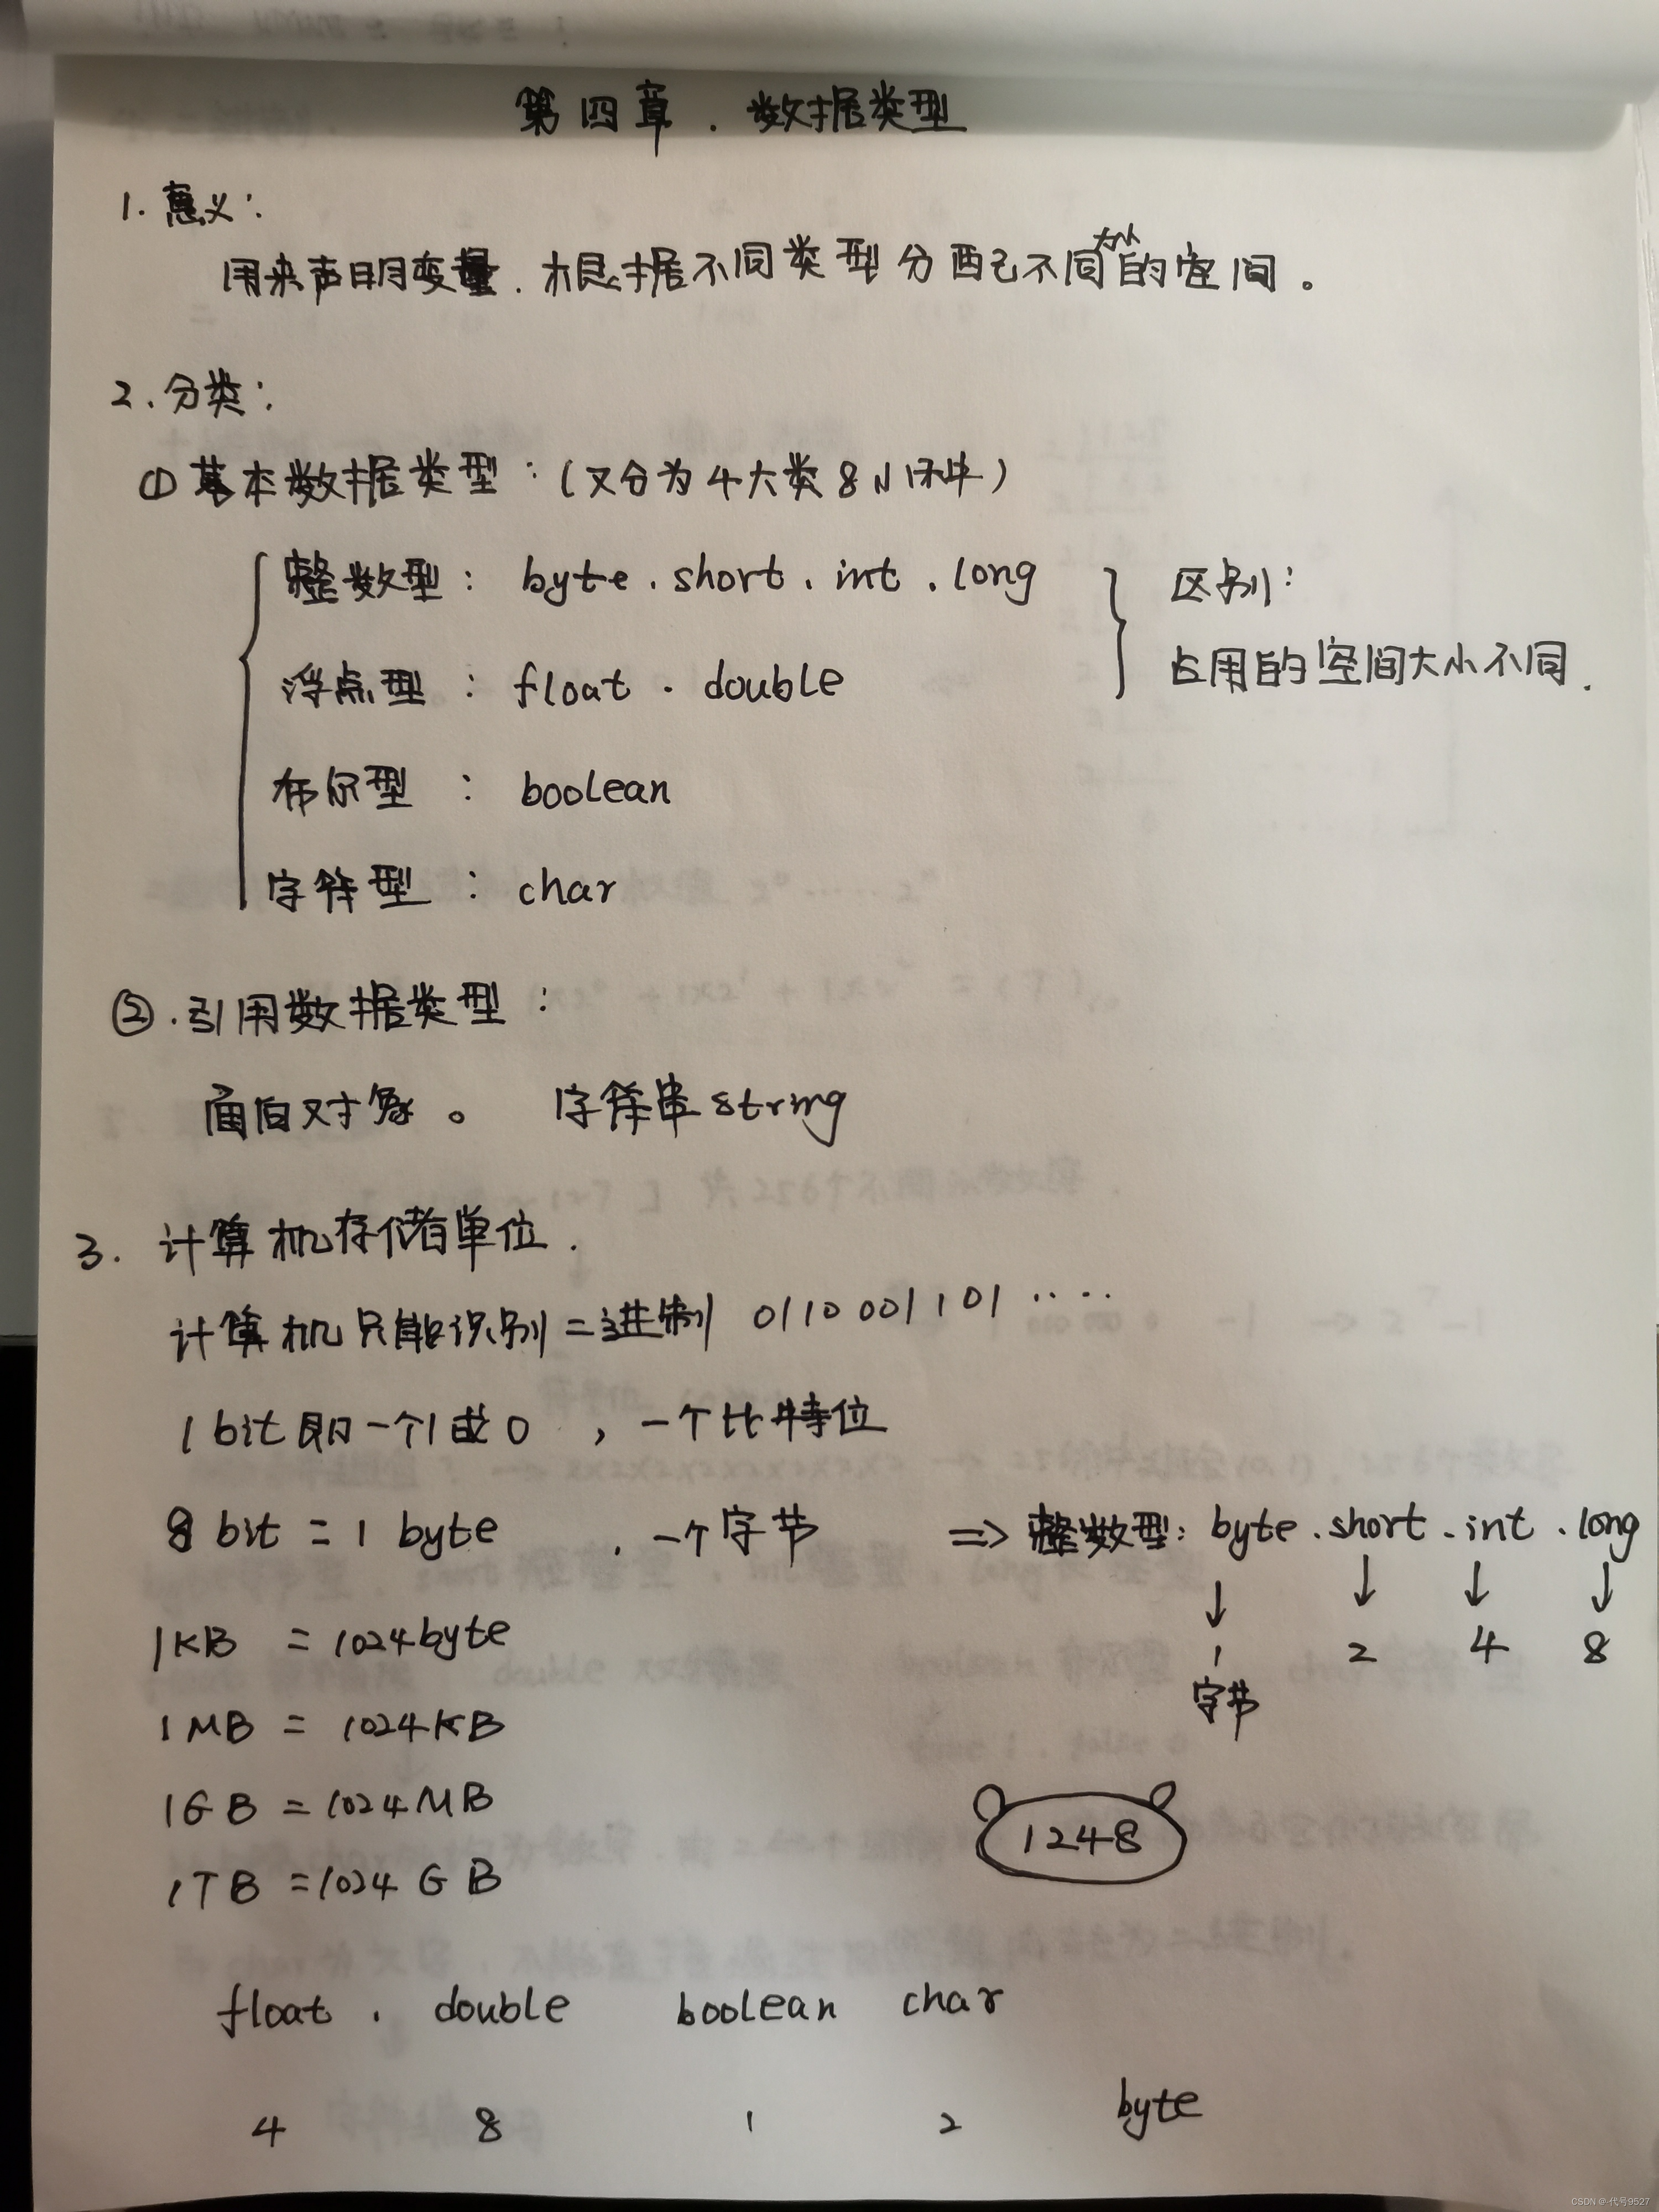 第四章. 数据类型
1. 意义:
用来声明变量. 根据不同类型分配不同大小的空间。
2. 分类:
① 基本数据类型:(又分为4大类8小种)
整数型: byte. short. int. long
浮点型: float. double
区别:
占用的空间大小不同.
布尔型: boolean
字符型: char
②. 引用数据类型:
面向对象。 字符串 string
3. 计算机存储单位.
计算机只能识别二进制 0110 001101 ....
1 bit 即一个1或0 , 一个比特位
8 bit = 1 byte . 一个字节 => 整数型: byte. short. int. long
↓ ↓ ↓ ↓
1 2 4 8
字节
1KB = 1024byte
1MB = 1024KB
1GB = 1024MB
1248
1TB = 1024GB
float. double boolean char
4 8 1 2 byte
CSDN @·代号9527